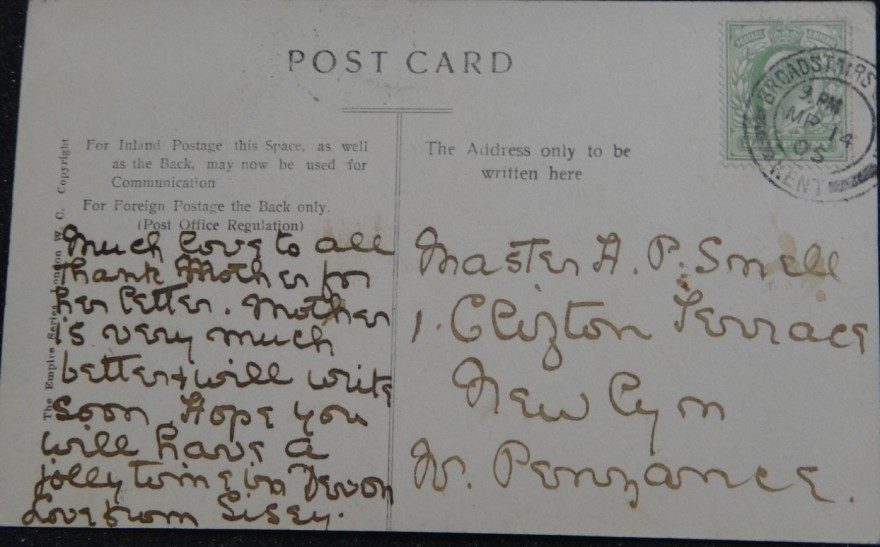 POST CARD
For Inland Postage this Space, as well
as the Back, may now be used for
Communication
For Foreign Postage the Back only.
(Post Office Regulation)
The Address only to be
written here
The Empire Series London W. C. Copyright
POSTAGE
BROADSTAIRS
9 PM
MR 14
05
KENT
Much love to all
thank Mother for
her letter. Mother
is very much
better & will write
soon. Hope you
will have a
jolly time in Devon
Love from Sisey.
Master H. P. Smell
1. Clifton Terrace
New Lyn
N. Penzance.